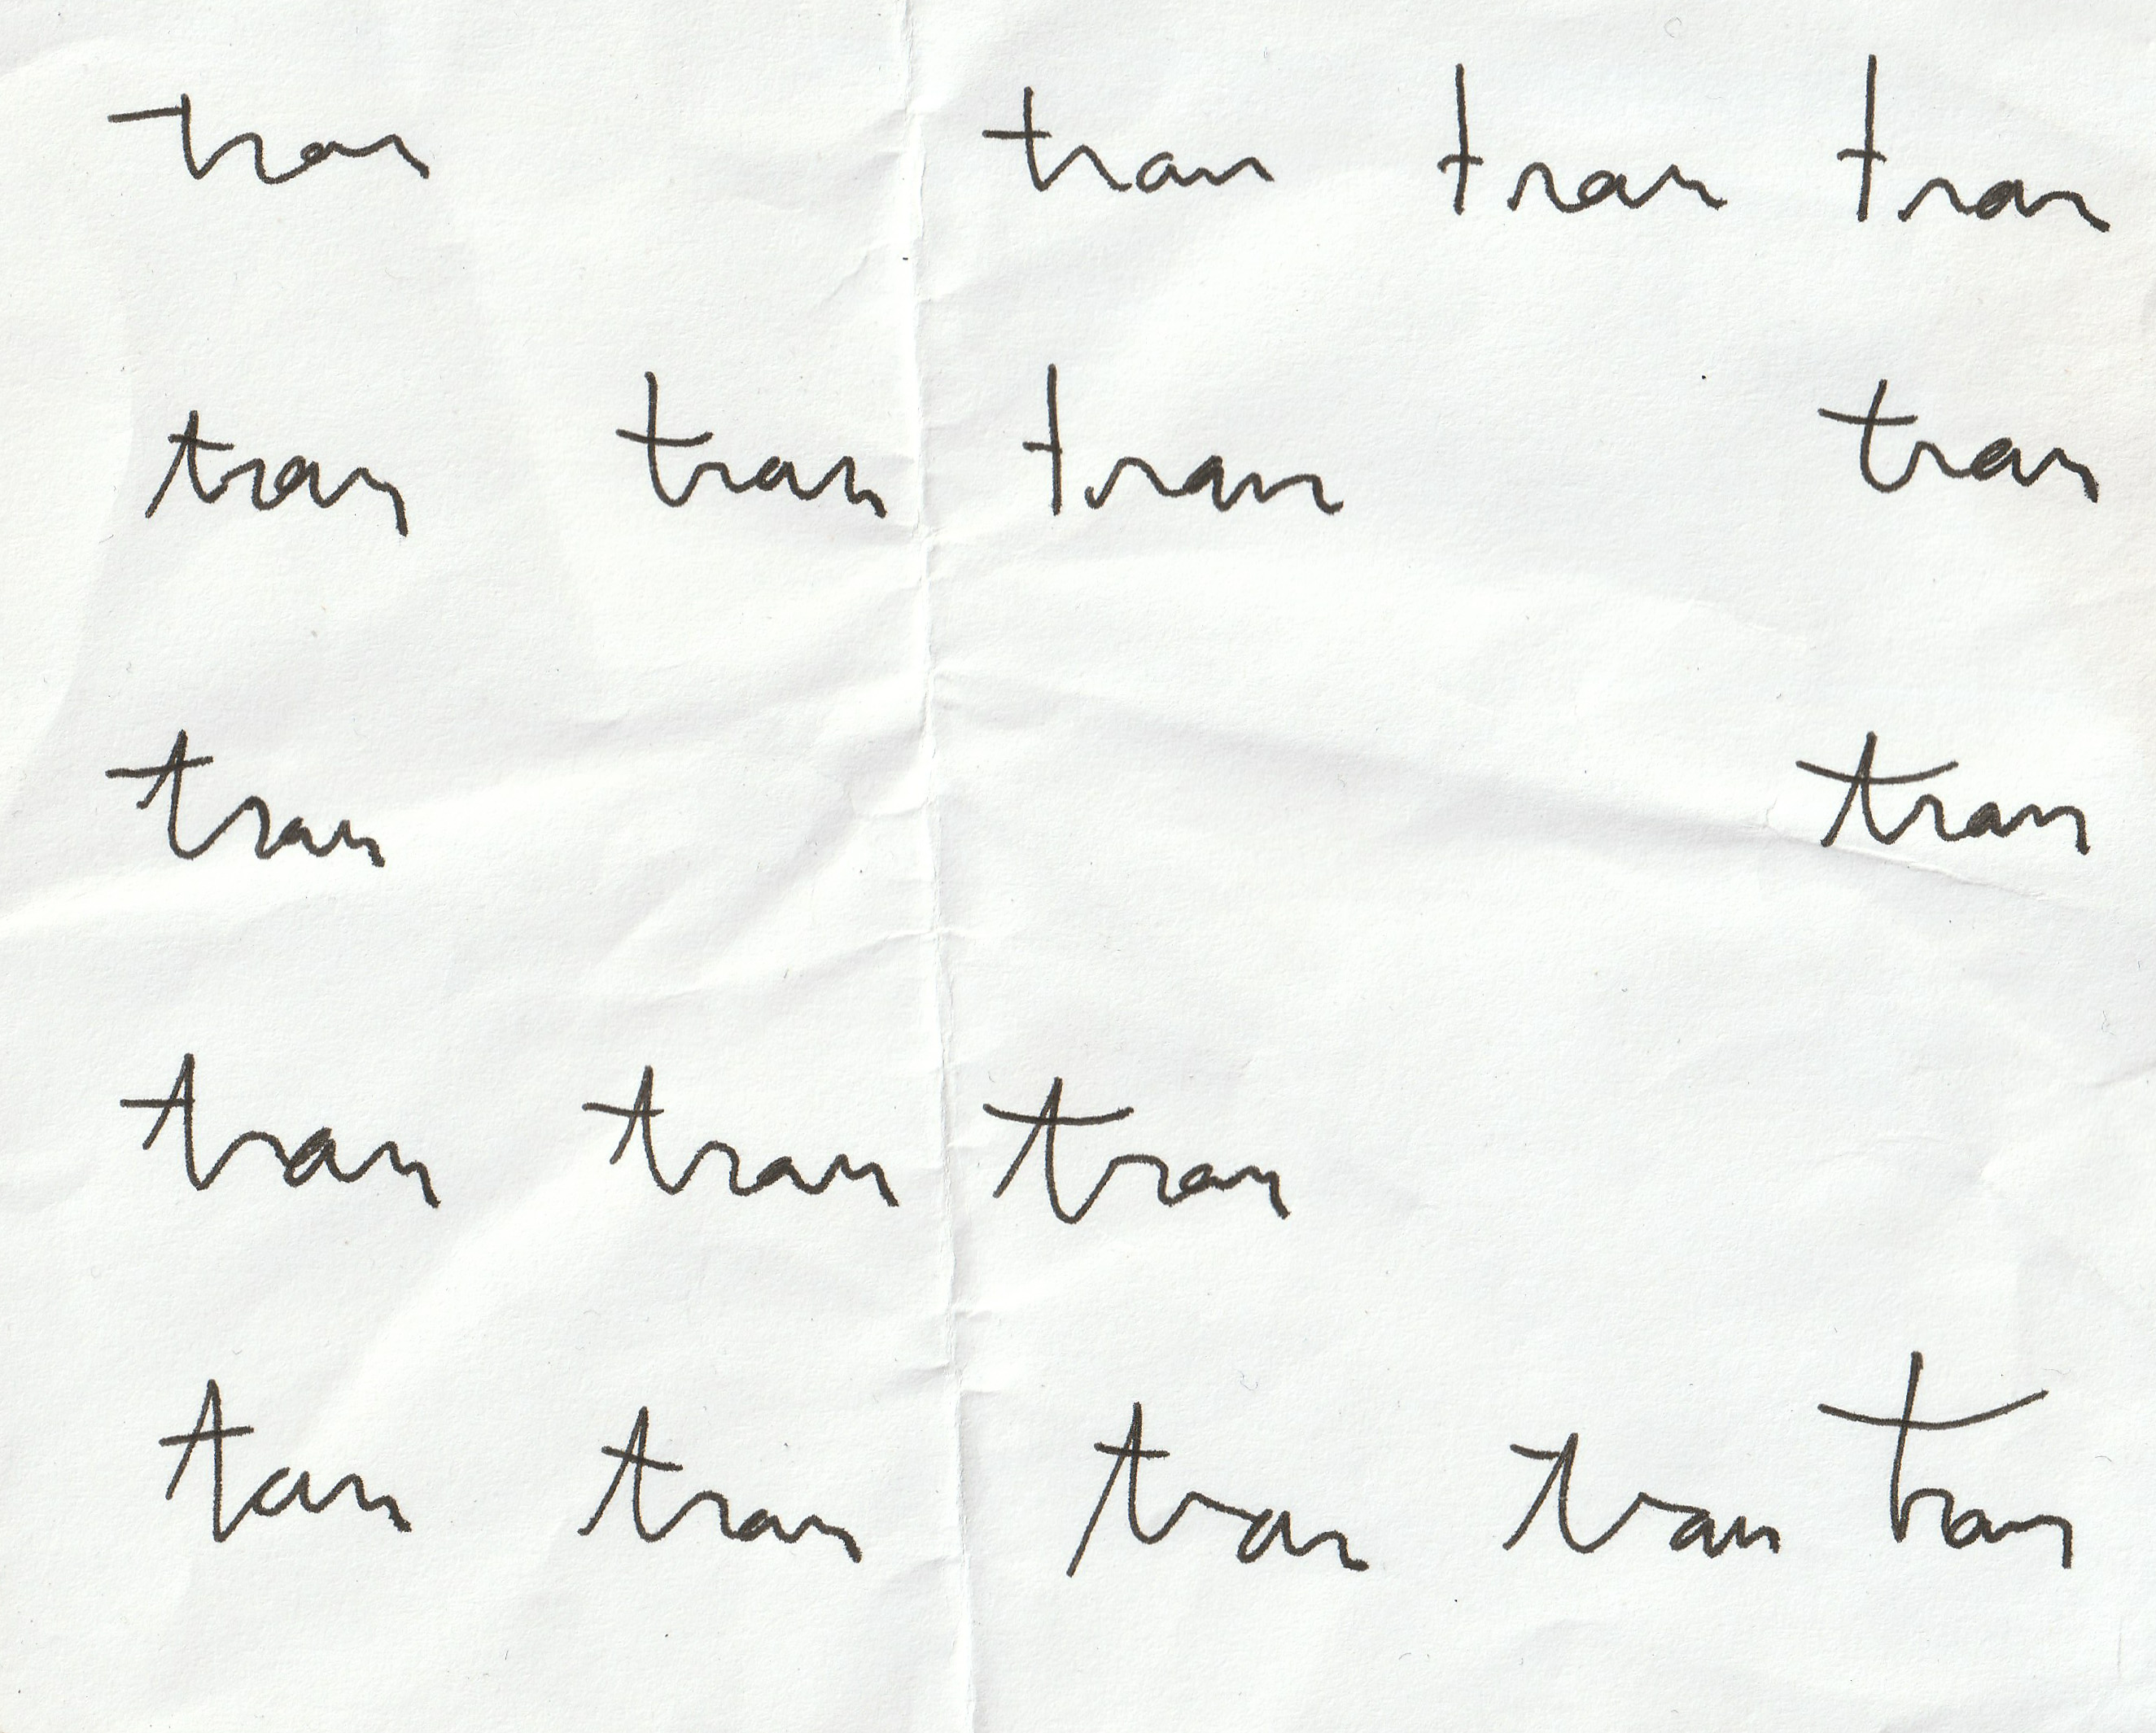 tran tran tran tran
tran tran tran tran
tran tran
tran tran tran
tan tran tran tran tran